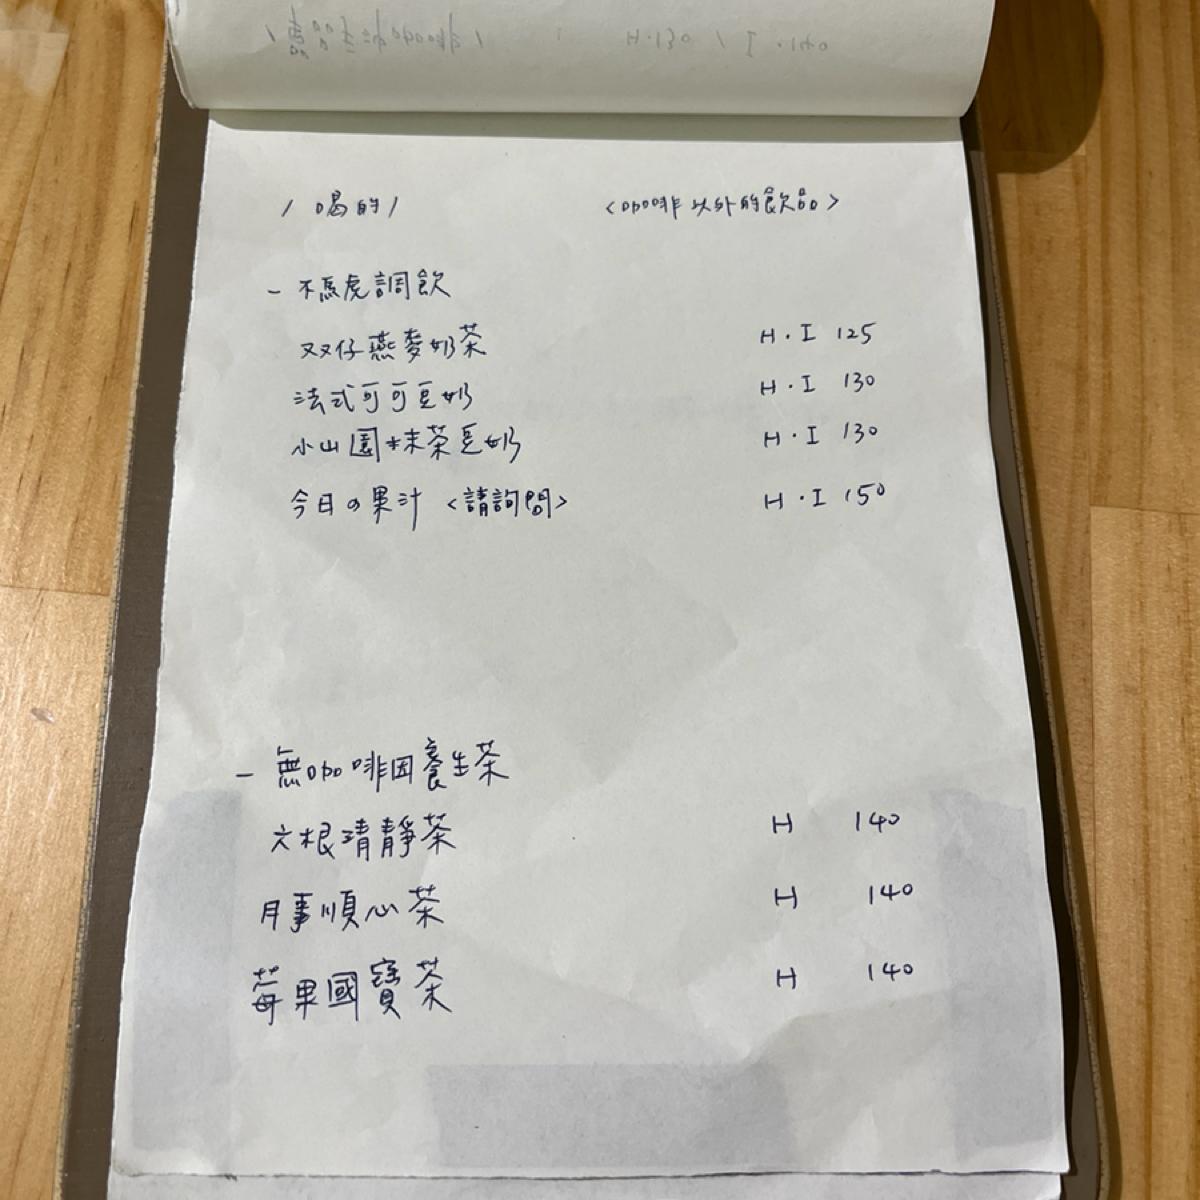 / 喝的 / <咖啡以外的飲品>
- 不馬虎調飲
双双仔燕麥奶茶 H·I 125
法式可可豆奶 H·I 130
小山園抹茶豆奶 H·I 130
今日の果汁 <請詢問> H·I 150
- 無咖啡因養生茶
六根清靜茶 H 140
月事順心茶 H 140
莓果國寶茶 H 140